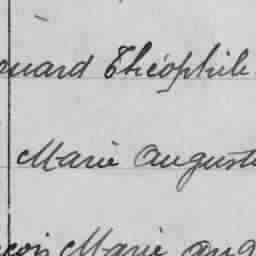 ouard Théophile
Marie Auguste
çois Marie Aug